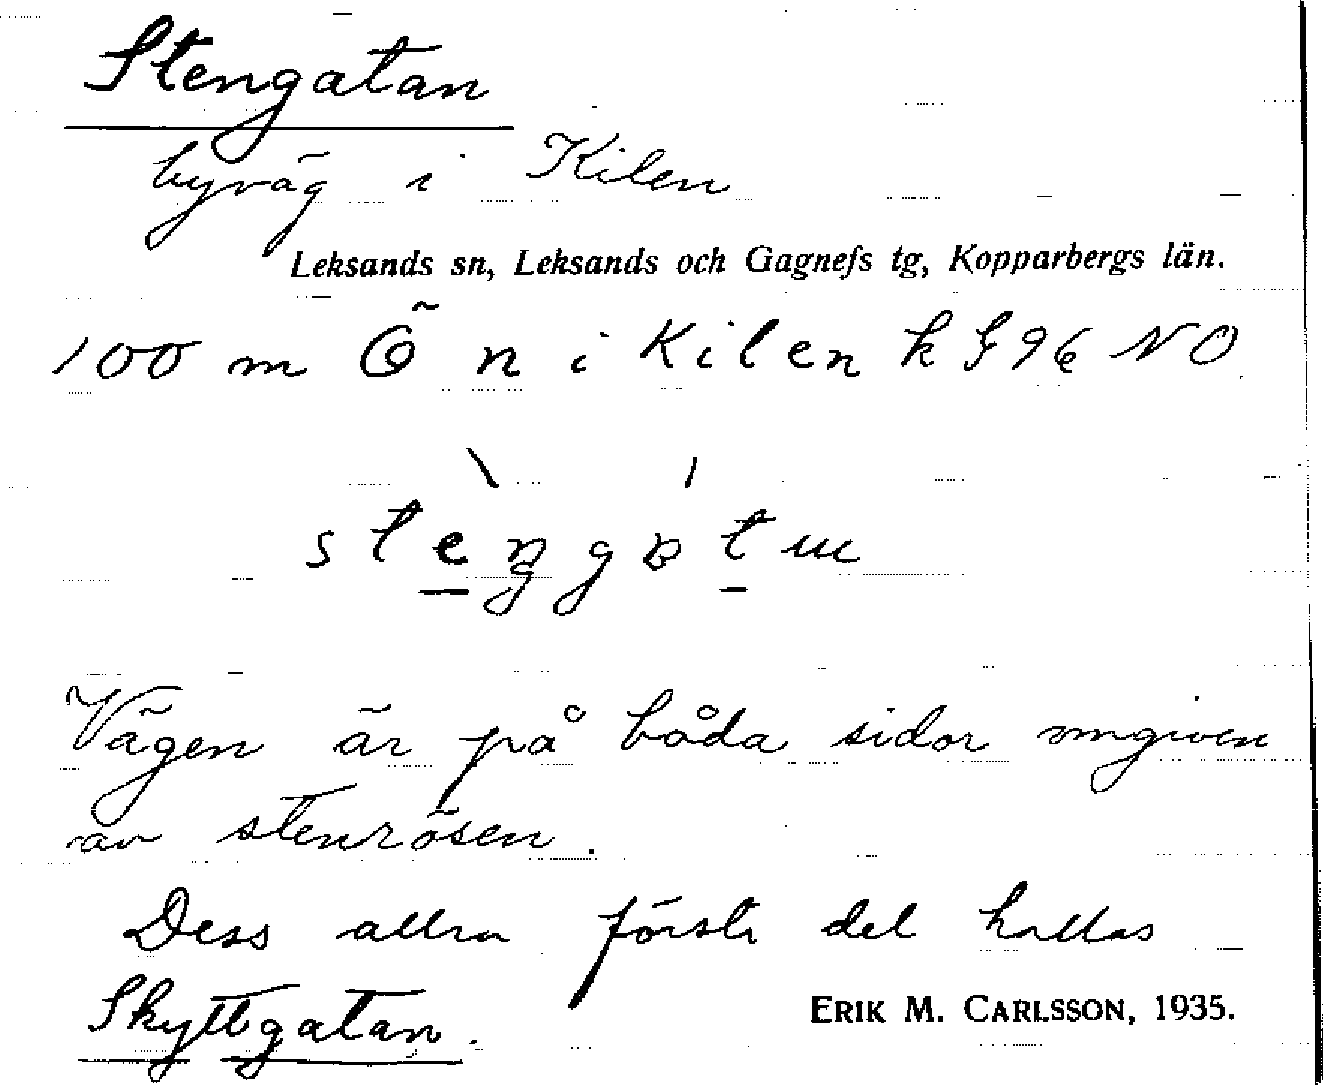 Stengatan
byväg i Kilen
Leksands sn, Leksands och Gagnefs tg, Kopparbergs län.
100 m Ö n i Kilen k G 96 NO
Vägen är på båda sidor omgiven
av stenrösen.
Dess allra första del kallas
Skyttgatan.
ERIK M. CARLSSON, 1935.